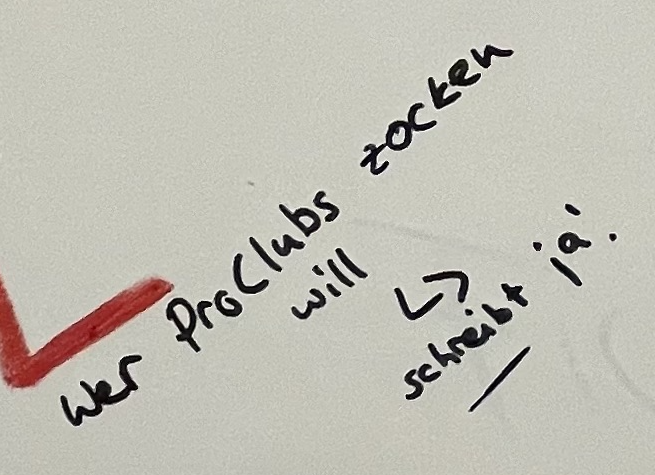 Wer ProClubs zocken
will
↳ schreibt ja!